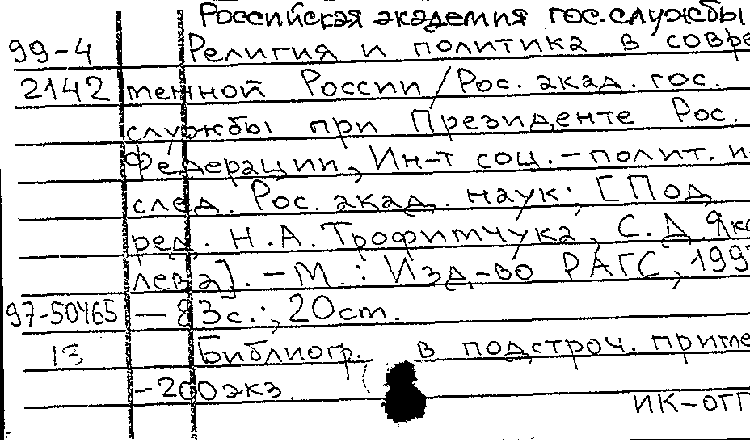 Российская академия гос. службы
99-4 Религия и политика в совре
2142 менной России / Рос. акад. гос.
службы при Президенте Рос.
Федерации, Ин-т соц.-полит. и
след. Рос. акад. наук; [Под
ред. Н.А. Трофимчука, С.Д. Яко
лева]. - М.: Изд-во РАГС, 199
97-50465 - 83с.; 20 см.
13 Библиогр. в подстроч. приме
-200 экз
ИК-ОТГ